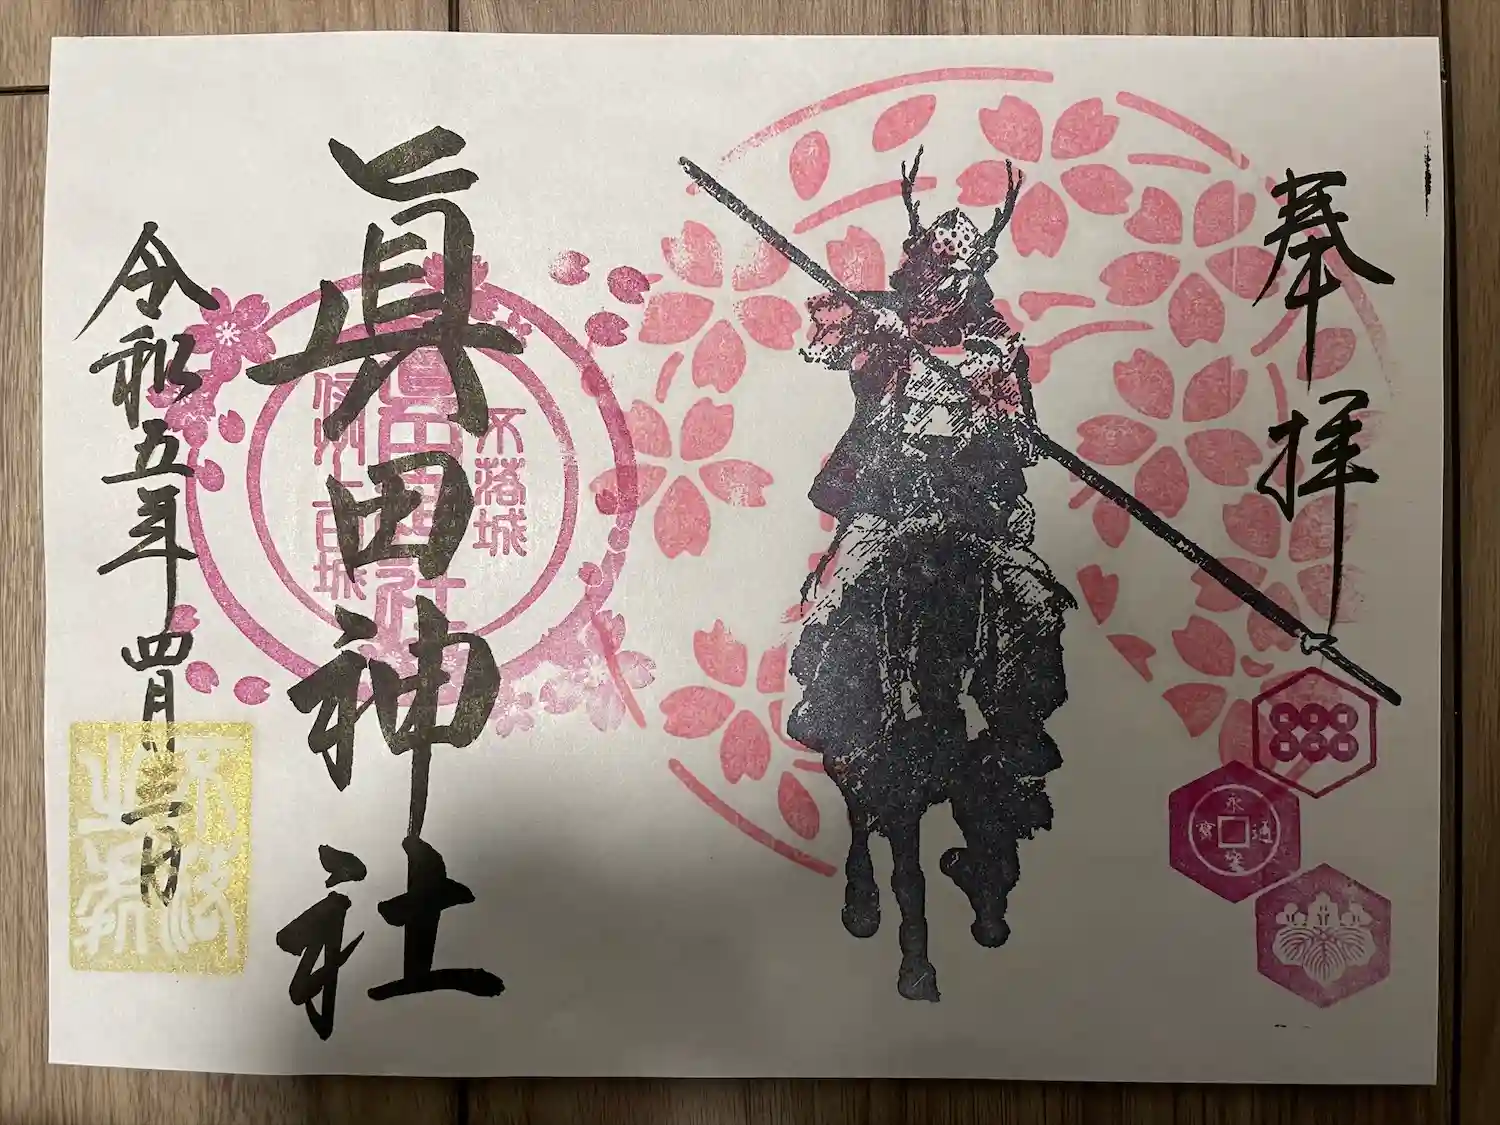 奉拝
永
通
寳
不落城
眞田神社
信州上田城
眞田神社
令和五年四月三日
不落